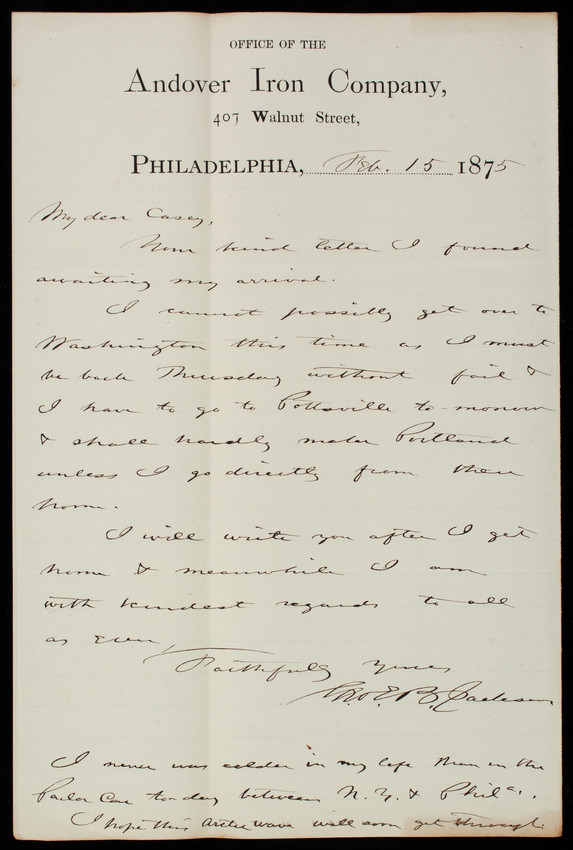 OFFICE OF THE
Andover Iron Company,
407 Walnut Street,
PHILADELPHIA, Feb. 15 1875
My dear Casey,
Your kind letter I found
awaiting my arrival.
I cannot possibly get over to
Washington this time as I must
be back Thursday without fail &
I have to go to Pottsville to-morrow
& shall hardly make Portland
unless I go directly from there
home.
I will write you after I get
home & meanwhile I am
with kindest regards to all
as ever,
Faithfully Yours
Geo. E. B. Jackson
I never was colder in my life than in the
Parlor Car to-day between N.Y. & Phila.
I hope this Arctic wave will soon get through